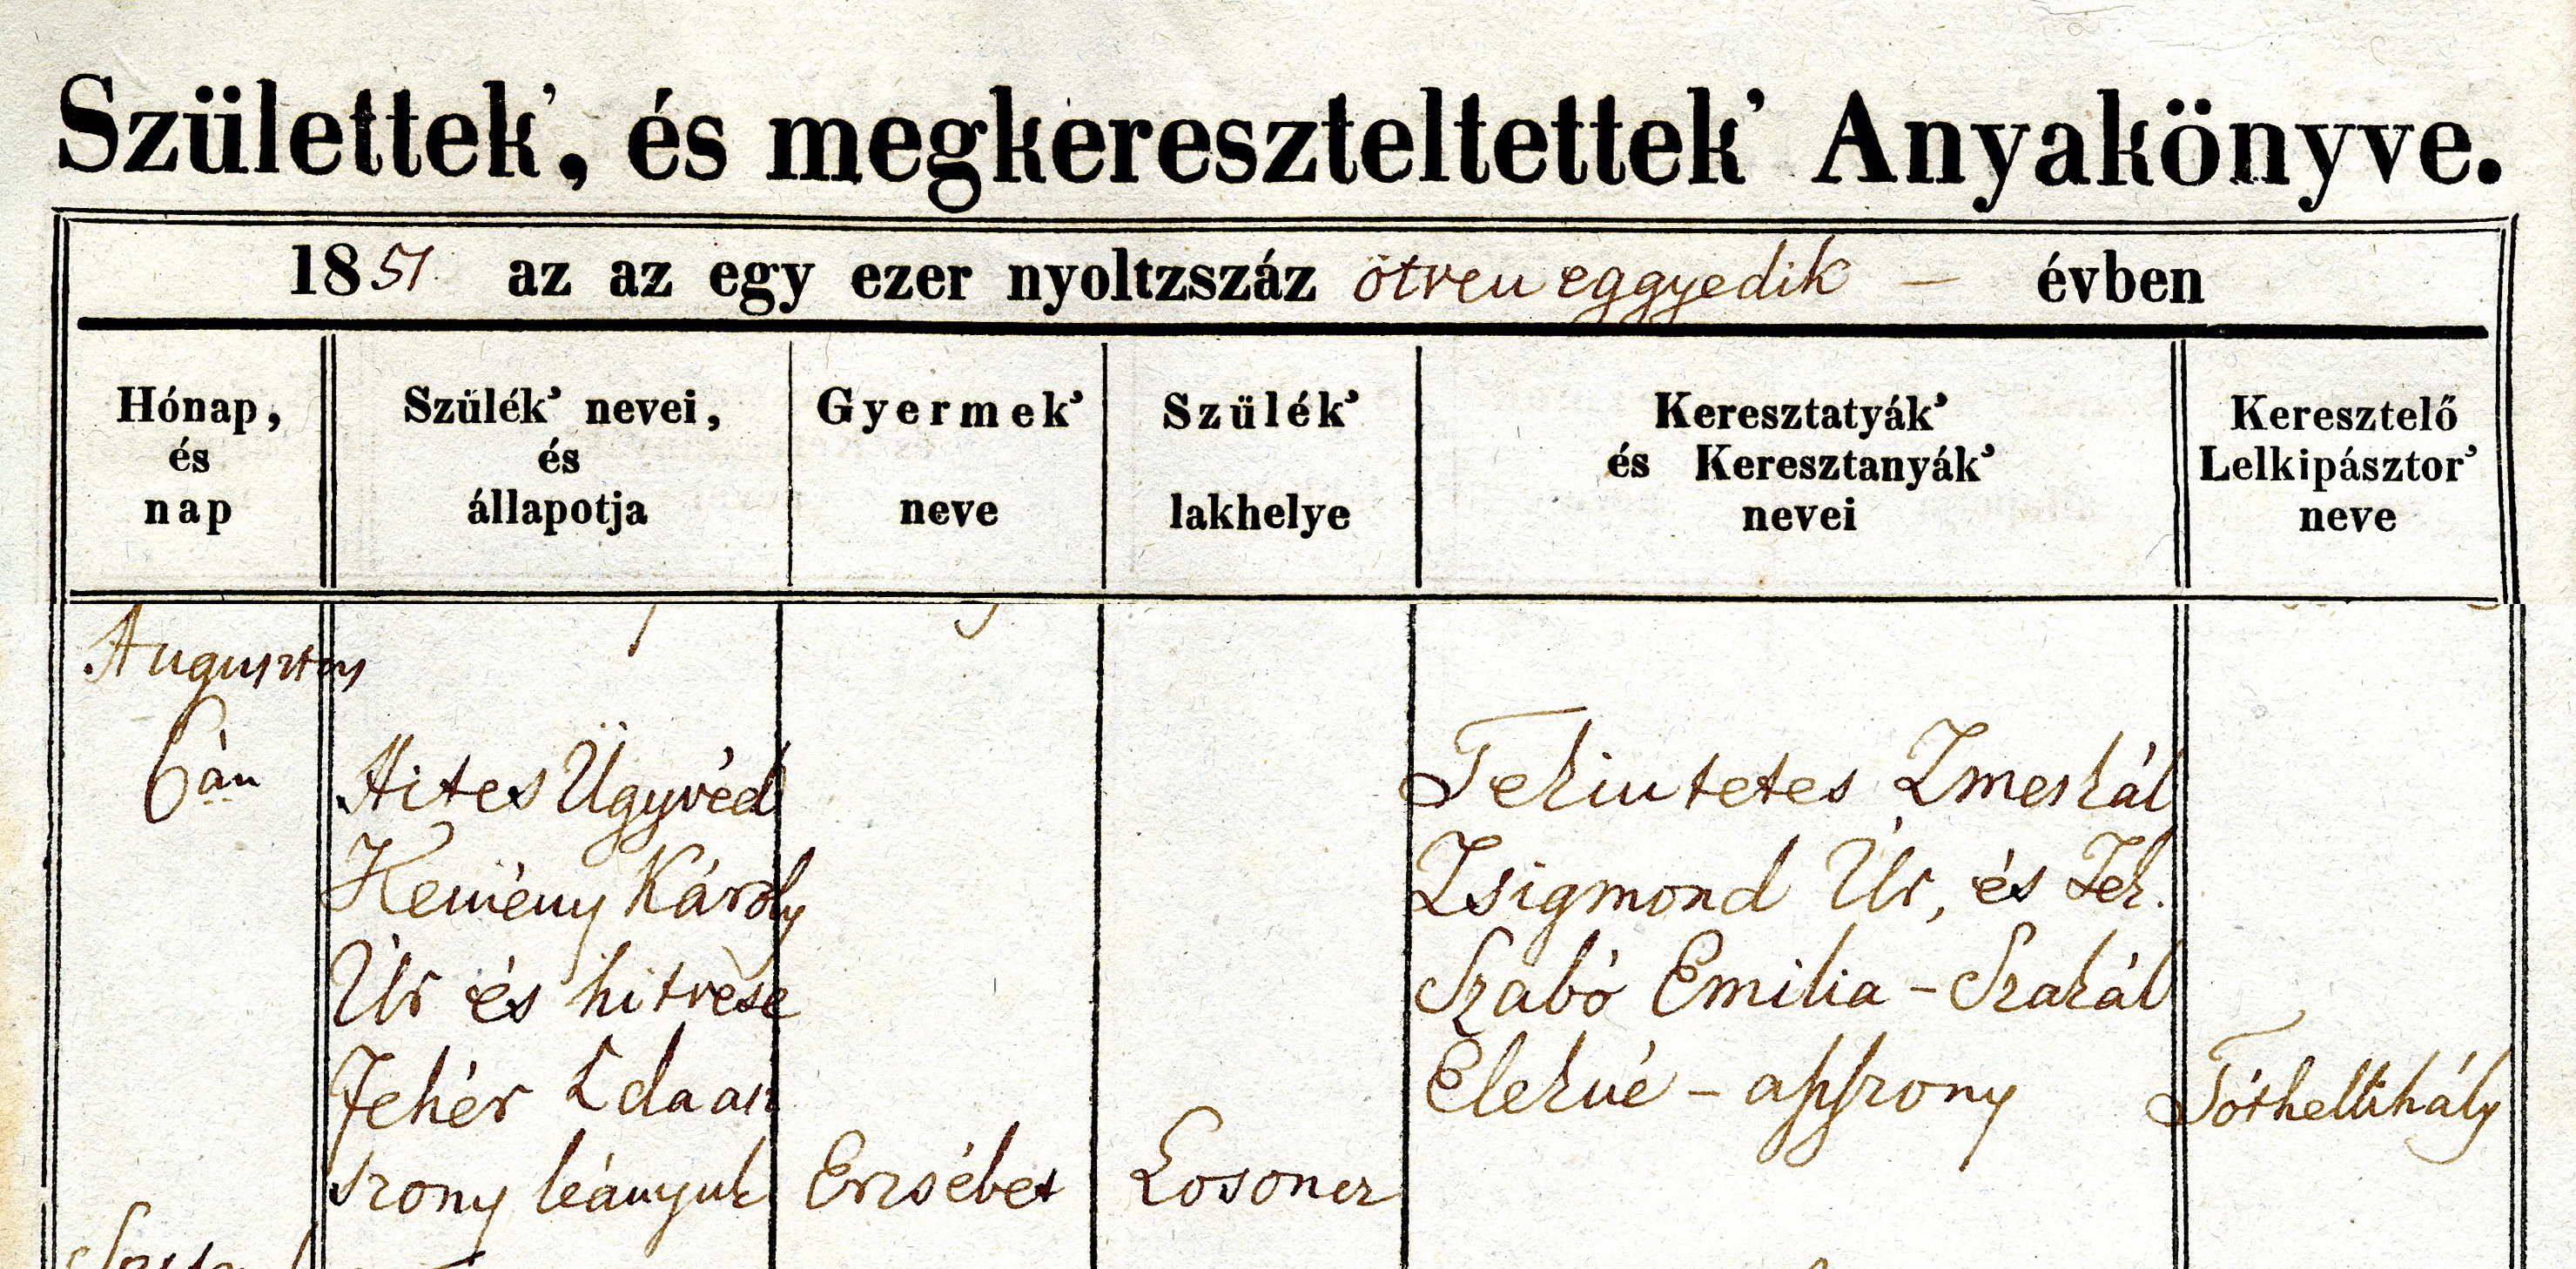 Születtek', és megkereszteltettek' Anyakönyve.
1851 az az egy ezer nyoltzszáz ötven eggyedik – évben
Hónap,
és
nap
Szülék' nevei,
és
állapotja
Gyermek'
neve
Szülék'
lakhelye
Keresztatyák'
és Keresztanyák'
nevei
Keresztelő
Lelkipásztor'
neve
Augusztus
6án
Hites Ügyvéd
Kemény Károly
Úr és hitvese
Fehér Ida asz
szony leányuk
Erzsébet
Losoncz
Tekintetes Zmeskál
Zsigmond Úr, és Tek.
Szabó Emilia – Szakál
Elekné – aszszony
Tóth Mihály